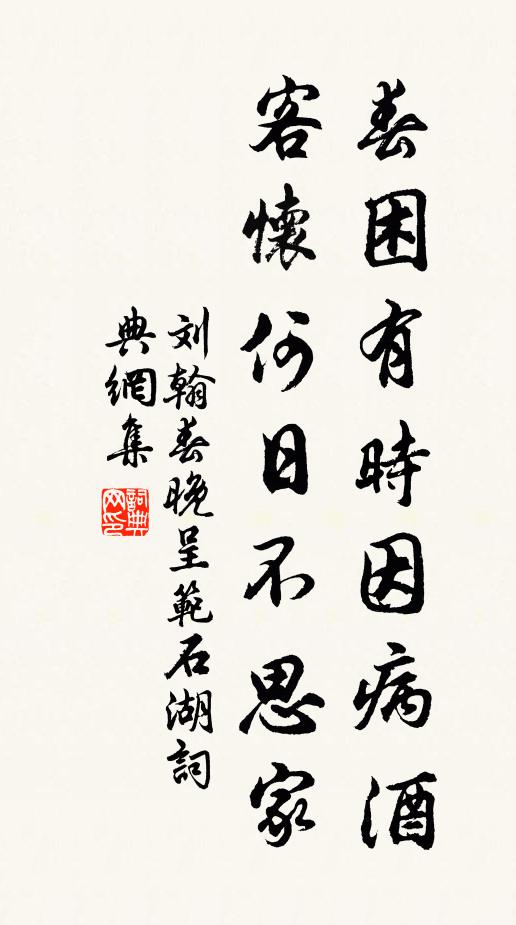 春困有時因病酒
客懷何日不思家
刘翰春晚呈範石湖詞
典網集
詞典
网印